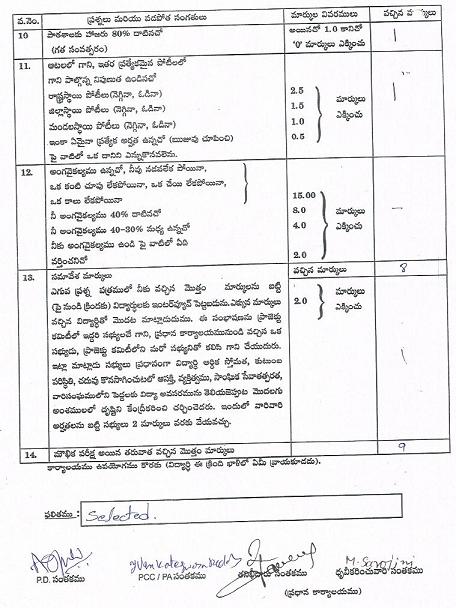 వ.నెం. ప్రశ్నలు మరియు వడపోత సంగతులు మార్కుల వివరములు వచ్చిన
10 పాఠశాలకు హాజరు 80% దాటినచో అయినచో 1.0 కానిచో 1
(గత సంవత్సరం) '0' మార్కులు ఎక్కించు
11. ఆటలలో గాని, ఇతర ప్రత్యేకమైన పోటీలలో
గాని పాల్గొన్న నిపుణుత ఉండినచో
రాష్ట్రస్థాయి పోటీలు (నెగ్గినా, ఓడినా) 2.5
జిల్లాస్థాయి పోటీలు (నెగ్గినా, ఓడినా) 1.5 మార్కులు
మండలస్థాయి పోటీలు (నెగ్గినా, ఓడినా) 1.0 ఎక్కించు
ఇంకా ఏమైనా ప్రత్యేక అర్హత ఉన్నచో (ఋజువు చూపించి) 0.5
పై వాటిలో ఒక దానిని ఎన్నుకొనవలెను.
12. అంగవైకల్యము ఉన్నచో, నీవు నడవలేక పోయినా,
ఒక కంటి చూపు లేకపోయినా, ఒక చేయి లేకపోయినా,
ఒక కాలు లేకపోయినా 15.00
నీ అంగవైకల్యము 40% దాటినచో 8.0 మార్కులు –
నీ అంగవైకల్యము 40-30% మధ్య ఉన్నచో 4.0 ఎక్కించు
నీకు అంగవైకల్యము ఉండి పై వాటిలో ఏది
వర్తించనిచో 2.0
13. సమావేశ మార్కులు వచ్చిన మార్కులు 8
ఎగువ ప్రశ్న పత్రములో నీకు వచ్చిన మొత్తం మార్కులను బట్టి
(పై నుండి క్రిందకు) విద్యార్థులకు ఇంటర్వ్యూన్ పెట్టబడును. ఎక్కువ మార్కులు 2.0 మార్కులు
వచ్చిన విద్యార్థితో మొదట మాట్లాడుదుము. ఈ సంభాషణను ప్రాజెక్టు ఎక్కించు
కమిటీలో ఇద్దరి సభ్యులచే గాని, ప్రధాన కార్యాలయమునుండి వచ్చిన ఒక
సభ్యుడు, ప్రాజెక్టు కమిటీలోని మరో సభ్యునితో కలిసి గాని చేయుదురు.
ఇట్లా మాట్లాడు సభ్యులు ప్రధానంగా విద్యార్థి ఆర్థిక స్తోమత, కుటుంబ
పరిస్థితి, చదువు కొనసాగించుటలో ఆసక్తి, వ్యక్తిత్వము, సాంఘిక సేవాతత్పరత, 1
వారిసంఘములోని పెద్దలకు విద్యా అవసరమును తెలియజెప్పుట మొదలగు
అంశములలో దృష్టిని కేంద్రీకరించి చర్చించెదరు. ఇందులో వారివారి
అర్హతలను బట్టి సభ్యులు 2 మార్కులు వరకు వేయవచ్చు.
14. మౌఖిక పరీక్ష అయిన తరువాత వచ్చిన మొత్తం మార్కులు 9
కార్యాలయము ఉపయోగము కొరకు (విద్యార్థి ఈ క్రింది ఖాళీలో ఏమీ వ్రాయకూడదు).
ఫలితము : Selected.
M. Sarojini
P.D. సంతకము PCC / PA సంతకము తనిఖీదారు సంతకము ధృవీకరించువారి సంతకము
(ప్రధాన కార్యాలయము)